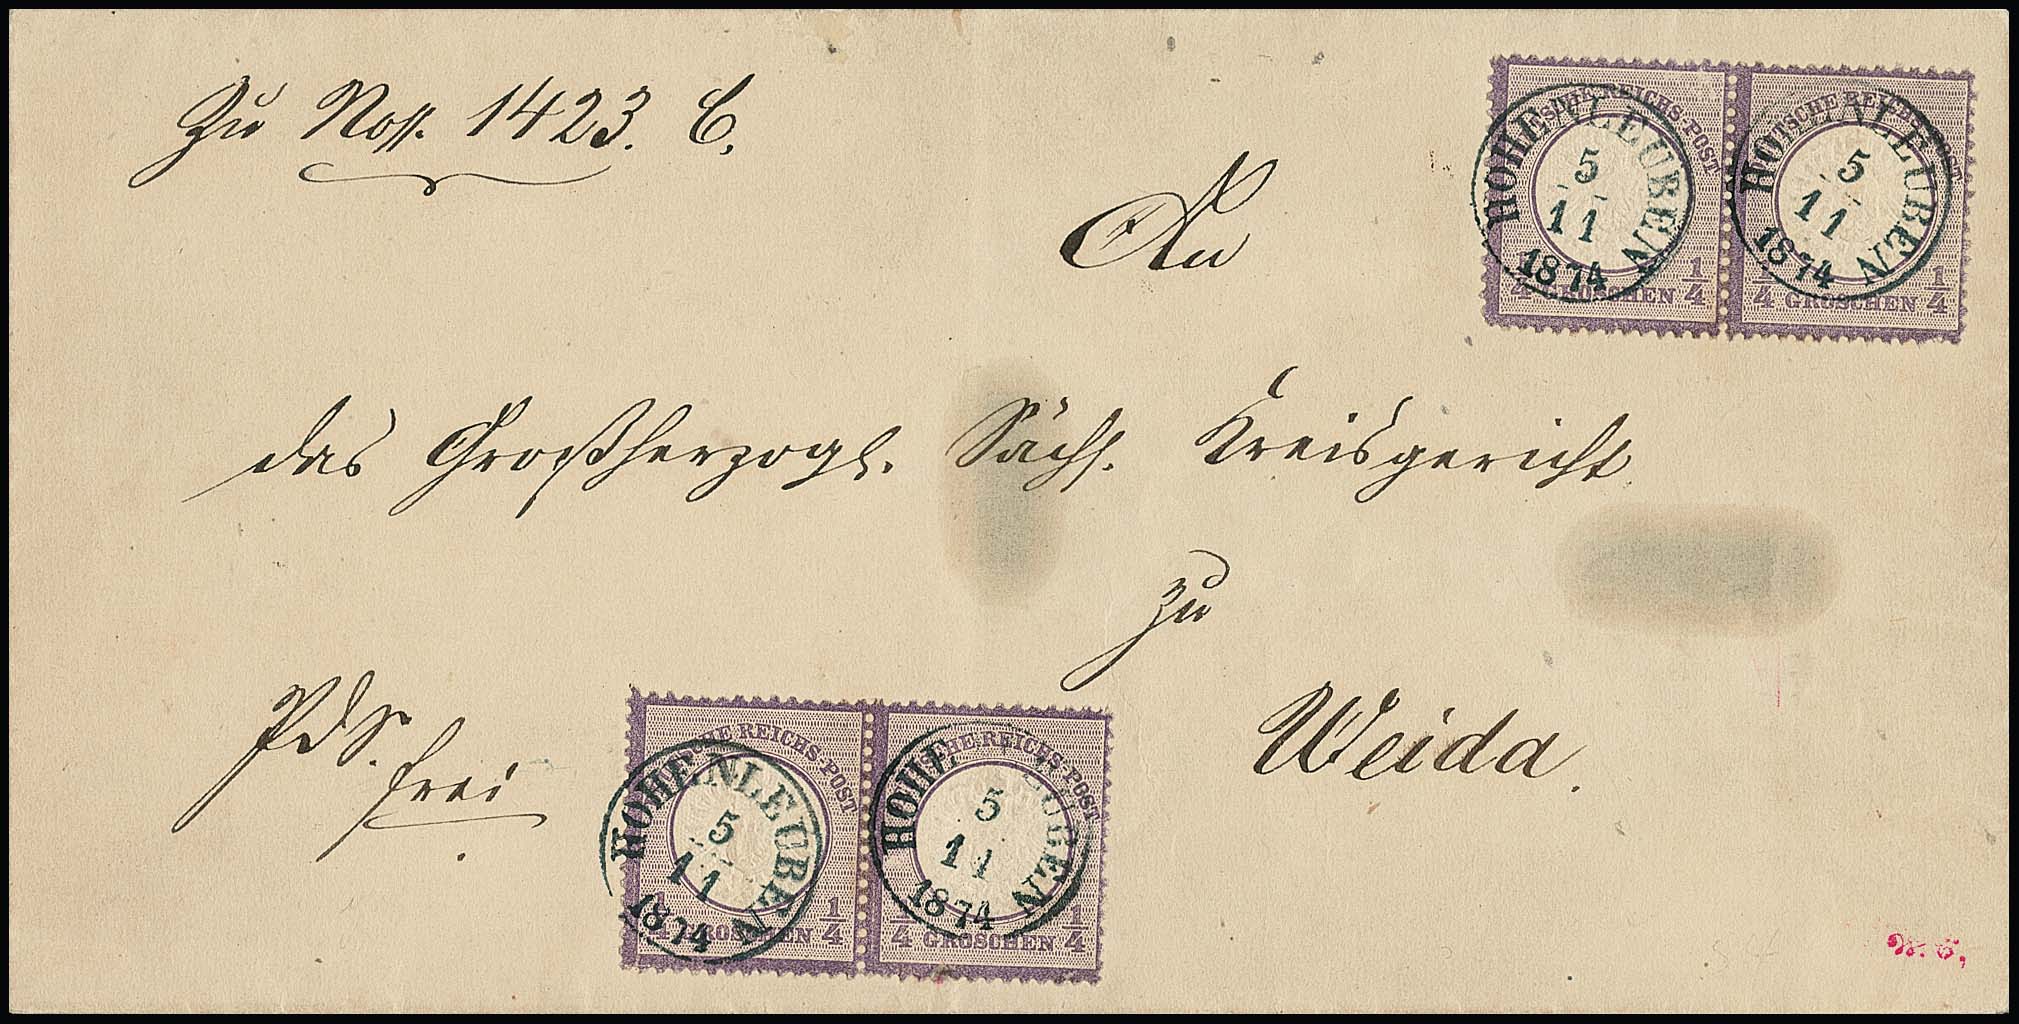 Zu Noss. 1423. C.
An
das Großherzogl. Sächs. Kreisgericht
zu
Weida.
PdS.
frei
DEUTSCHE REICHS-POST
1/4 GROSCHEN 1/4
HOHENLEUBEN
5
11
1874
DEUTSCHE REICHS-POST
1/4 GROSCHEN 1/4
HOHENLEUBEN
5
11
1874
DEUTSCHE REICHS-POST
1/4 GROSCHEN 1/4
HOHENLEUBEN
5
11
1874
DEUTSCHE REICHS-POST
1/4 GROSCHEN 1/4
HOHENLEUBEN
5
11
1874